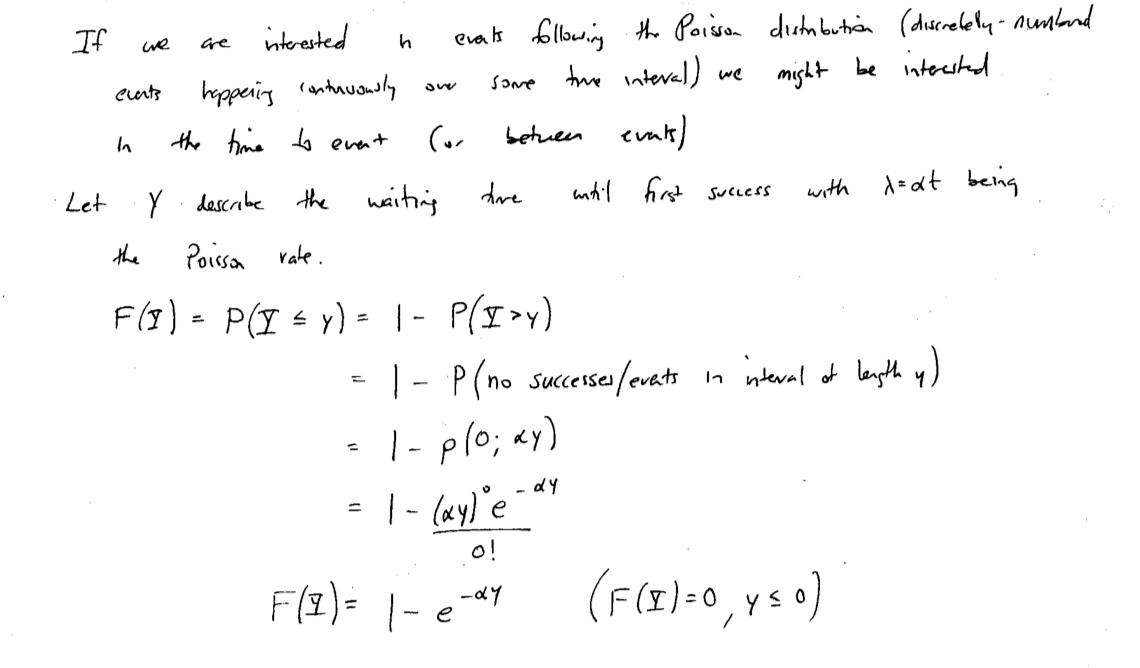 If we are interested in events following the Poisson distribution (discretely-numbered
events happening continuously over some time interval) we might be interested
in the time to event (or between events)
Let Y describe the waiting time until first success with λ=αt being
the Poisson rate.
F(Y) = P(Y ≤ y) = 1 - P(Y>y)
= 1 - P(no successes/events in interval of length y)
= 1 - p(0; αy)
= 1 - (αy)⁰e^(-αy) / 0!
F(Y) = 1 - e^(-αy) (F(Y)=0, y ≤ 0)